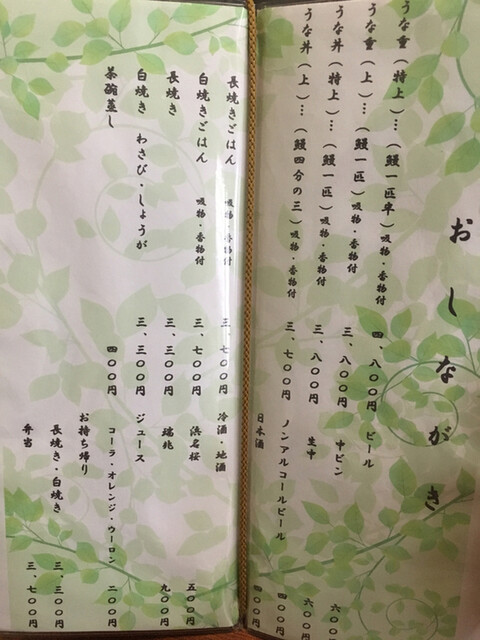 おしながき
うな重（特上）…（鰻一匹半）吸物・香物付 四、八〇〇円
うな重（上）…（鰻一匹）吸物・香物付 三、八〇〇円
うな丼（特上）…（鰻一匹）吸物・香物付 三、八〇〇円
うな丼（上）…（鰻四分の三）吸物・香物付 三、七〇〇円
ビール
中ビン 六〇〇
生中 六〇〇円
ノンアルコールビール 四〇〇円
日本酒 四〇〇円
長焼きごはん 吸物・香物付 三、七〇〇円
白焼きごはん 吸物・香物付 三、七〇〇円
長焼き 三、三〇〇円
白焼き わさび・しょうが 三、三〇〇円
茶碗蒸し 四〇〇円
冷酒・地酒
浜名桜 五〇〇円
瑞兆 九〇〇円
ジュース
コーラ・オレンジ・ウーロン 二〇〇円
お持ち帰り
長焼き・白焼き 三、三〇〇円
弁当 三、七〇〇円